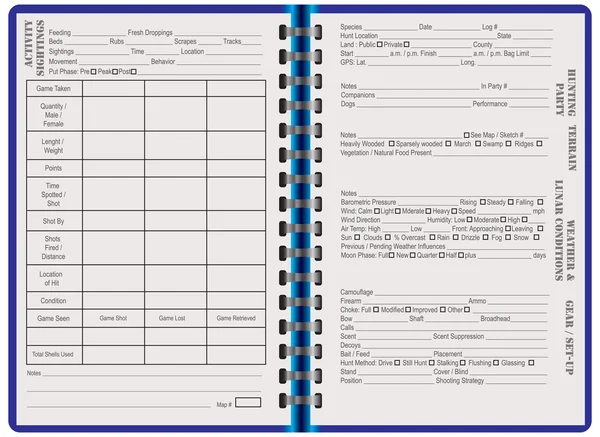 ACTIVITY
SIGHTINGS
Feeding ____________ Fresh Droppings ____________
Beds ____________ Rubs ____________ Scrapes ________ Tracks______
Sightings ____________ Time ____________ Location ____________
Movement ____________ Behavior ____________
Put Phase: Pre □ Peak □ Post □
Game Taken
Quantity /
Male /
Female
Lenght /
Weight
Points
Time
Spotted /
Shot
Shot By
Shots
Fired /
Distance
Location
of Hit
Condition
Game Seen Game Shot Game Lost Game Retrieved
Total Shells Used
Notes ____________
Map # □
Species ____________ Date ____________ Log # ____________
Hunt Location ____________ State ____________
Land : Public □ Private □ ____________ County ____________
Start ________ a.m. / p.m. Finish ________ a.m. / p.m. Bag Limit ______
GPS: Lat. ____________ Long. ____________
HUNTING
PARTY
Notes ____________ In Party # ________
Companions ____________
Dogs ____________ Performance ____________
TERRAIN
Notes ____________ □ See Map / Sketch # ______
Heavily Wooded □ Sparsely wooded □ March □ Swamp □ Ridges □
Vegetation / Natural Food Present ____________
WEATHER &
LUNAR CONDITIONS
Notes ____________
Barometric Pressure ____________ Rising □ Steady □ Falling □
Wind: Calm □ Light □ Mderate □ Heavy □ Speed ____________ mph
Wind Direction ____________ Humidity: Low □ Moderate □ High □ ____
Air Temp: High ________ Low ________ Front: Approaching □ Leaving □
Sun □ Clouds □ % Overcast □ Rain □ Drizzle □ Fog □ Snow □
Previous / Pending Weather Influences ____________
Moon Phase: Full □ New □ Quarter □ Half □ plus ____________ days
GEAR / SET-UP
Camouflage ____________
Firearm ____________ Ammo ____________
Choke: Full □ Modified □ Improved □ Other □ ____________
Bow ____________ Shaft ____________ Broadhead________
Calls ____________
Scent ____________ Scent Suppression ____________
Decoys ____________
Bait / Feed ____________ Placement ____________
Hunt Method: Drive □ Still Hunt □ Stalking □ Flushing □ Glassing □
Stand ____________ Cover / Blind ____________
Position ____________ Shooting Strategy ____________